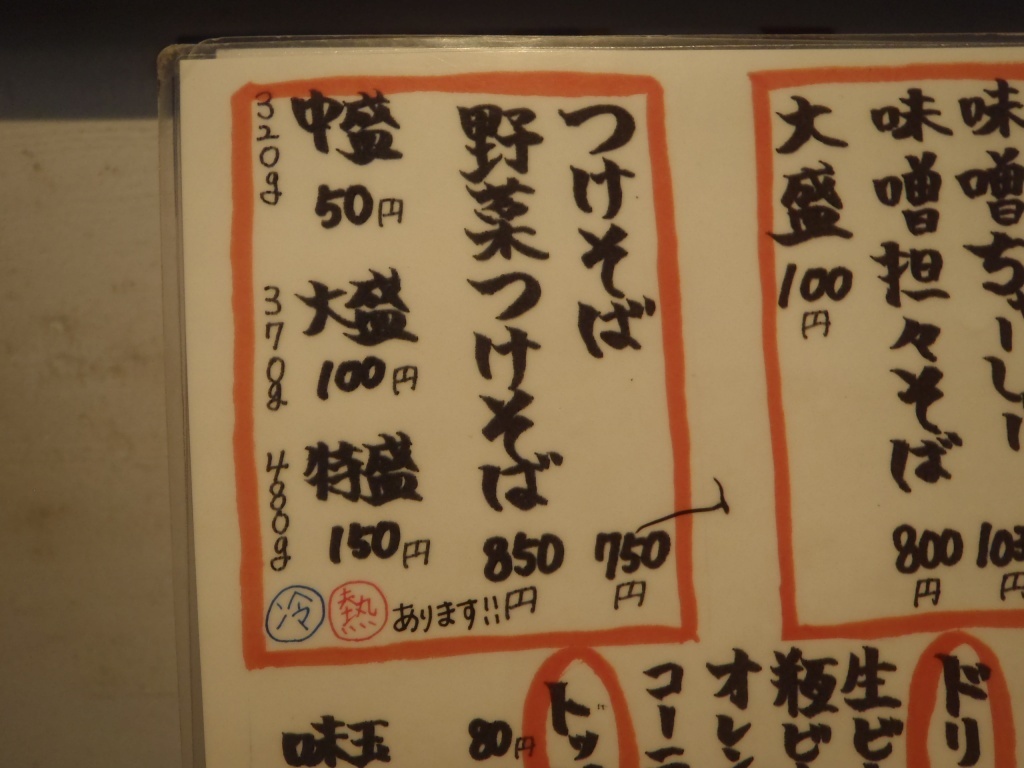 味噌ちゃーしー
味噌担々そば
800円
大盛
100円
つけそば
750円
野菜つけそば
850円
中盛
50円
320g
大盛
100円
370g
特盛
150円
480g
冷 熱 あります!!
ドリ
生ビ
瓶ビ
オレン
コーラ
トッ
味玉
80円